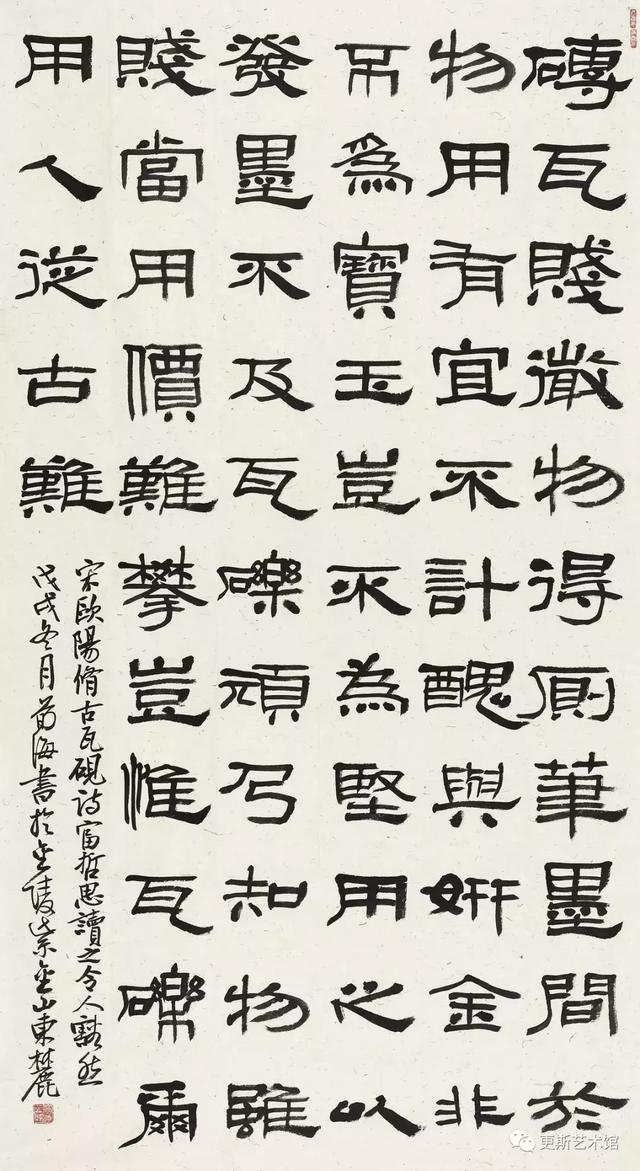 磚瓦賤微物得廁筆墨間於
物用有宜不計醜與妍金非
不為寶玉豈不為堅用之以
發墨不及瓦礫頑乃知物雖
賤當用價難攀豈惟瓦礫爾
用人從古難
宋歐陽脩古瓦硯詩富哲思讀之令人豁然
戊戌冬月海書於金陵紫金山東麓
更斯艺术馆